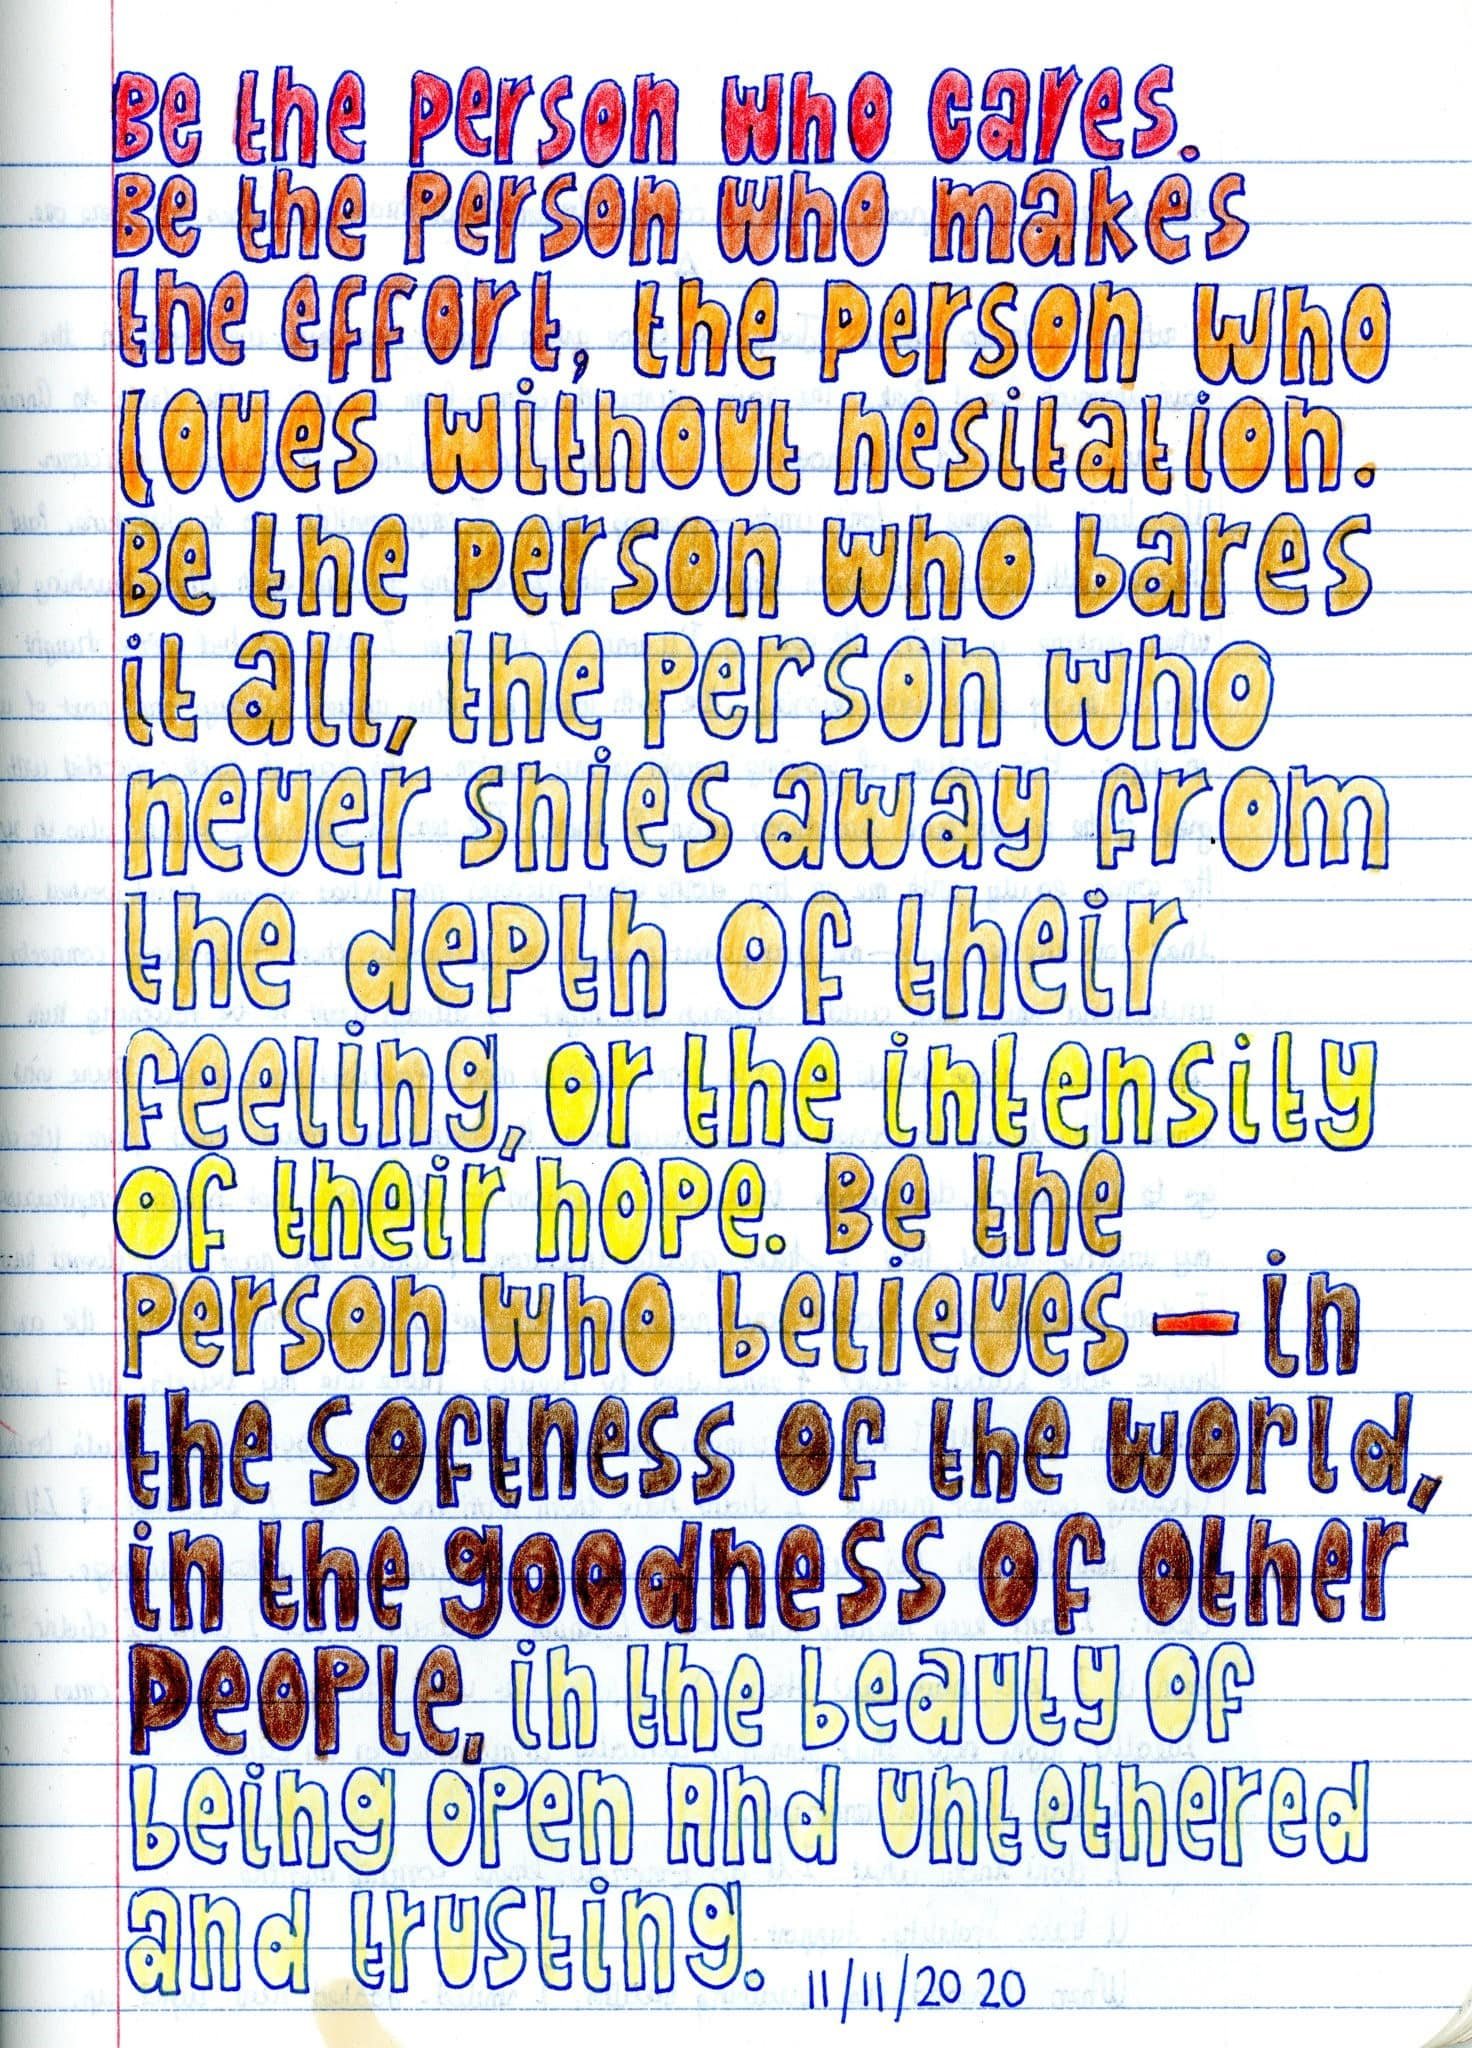 Be the person who cares.
Be the person who makes
the effort, the person who
loves without hesitation.
Be the person who bares
it all, the person who
never shies away from
the depth of their
feeling, or the intensity
of their hope. Be the
person who believes — in
the softness of the world,
in the goodness of other
people, in the beauty of
being open And untethered
and trusting.
11/11/2020